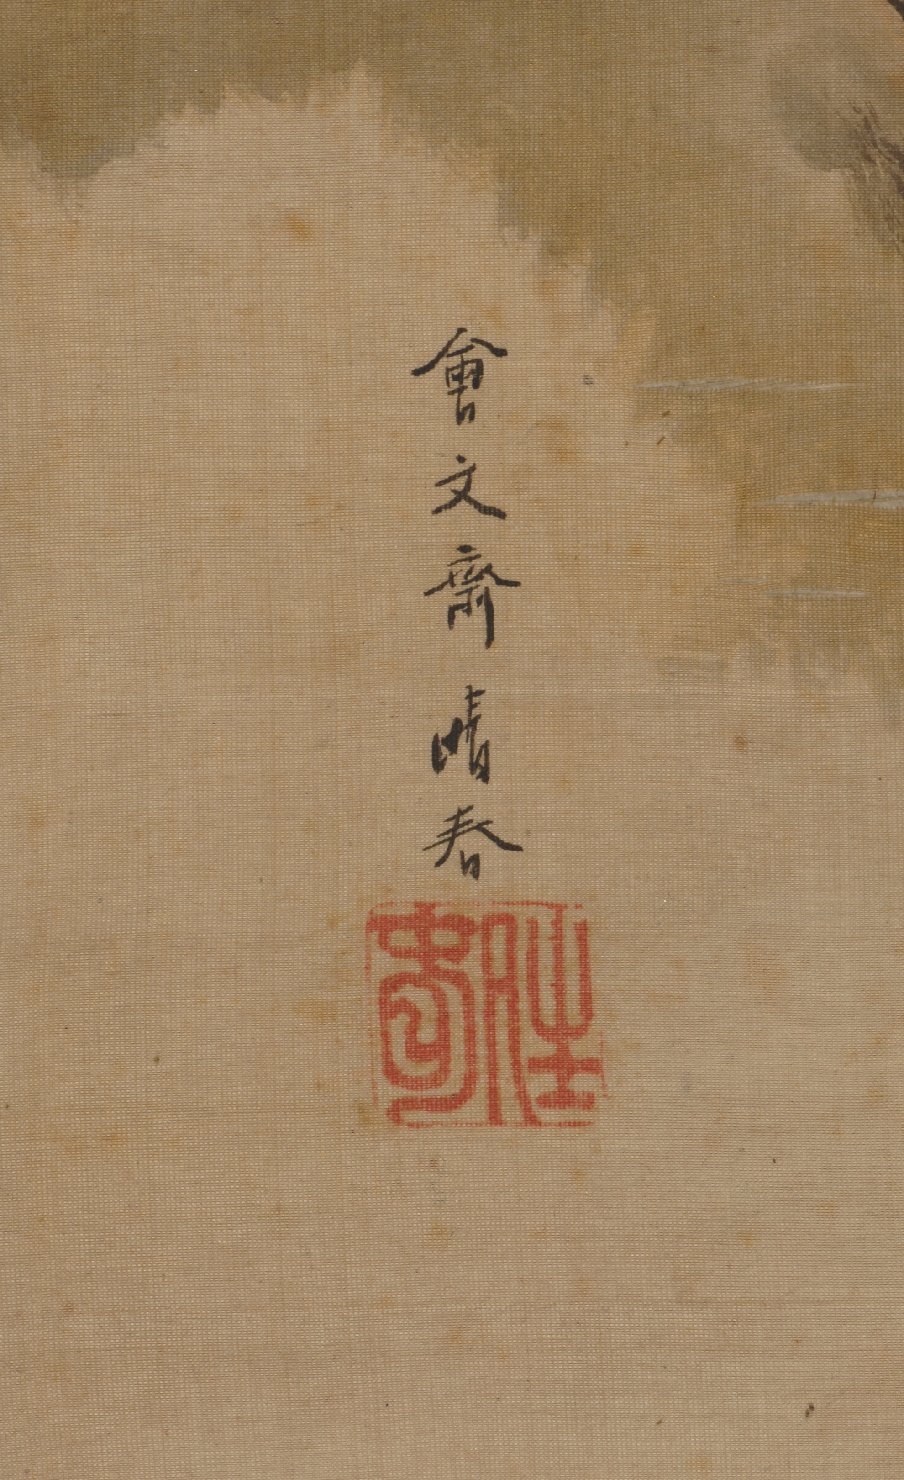 會文齋晴春